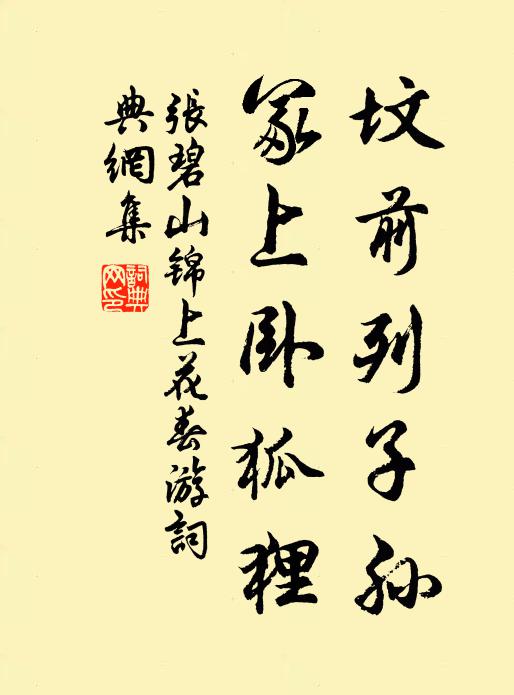 坟前列子孙
冢上卧狐狸
張碧山锦上花春游詞
典網集
詞典
网印